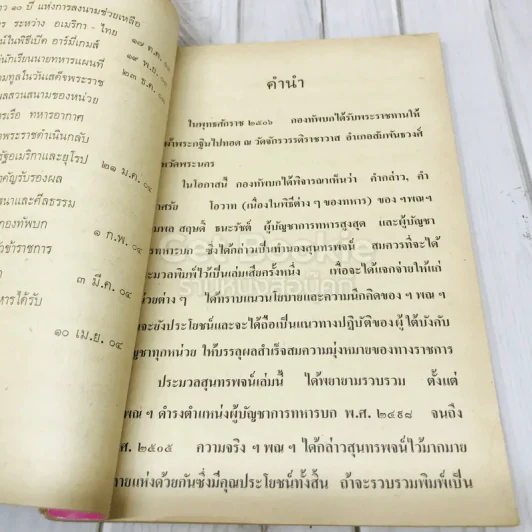 าว ๑๐ ปี แห่งการลงนามช่วยเหลือ
ร ระหว่าง อเมริกา - ไทย ๑๗ ต.ค. ๐๓
น์ในพิธีเปิด อาร์มี่เกมส์ ๑๙ พ.ย. ๐๓
นักเรียนนายทหารแผนที่ ๒๓ ธ.ค. ๐๓
ามทูลในวันเสด็จพระราช
ผลสวนสนามของหน่วย
ารเรือ ทหารอากาศ
าพระราชดำเนินกลับ
รัฐอเมริกาและยุโรป ๒๑ ม.ค. ๐๔
าคัญรับรองผล
นาและศีลธรรม
กองทัพบก ๑ ก.พ. ๐๔
ข้าราชการ
๓ มี.ค. ๐๔
หารได้รับ
๑๐ เม.ย. ๐๔
คำนำ
ในพุทธศักราช ๒๕๐๖ กองทัพบกได้รับพระราชทานให้
ผ้าพระกฐินไปทอด ณ วัดจักรวรรดิราชาวาส อำเภอสัมพันธวงศ์
หวัดพระนคร
ในโอกาสนี้ กองทัพบกได้พิจารณาเห็นว่า คำกล่าว, คำ
าศรัย โอวาท (เนื่องในพิธีต่าง ๆ ของทหาร) ของ ฯพณฯ
มพล สฤษดิ์ ธนะรัชต์ ผู้บัญชาการทหารสูงสุด และผู้บัญชา
ารทหารบก ซึ่งได้กล่าวเป็นทำนองสุนทรพจน์ สมควรที่จะได้
ะมวลพิมพ์ไว้เป็นเล่มเสียครั้งหนึ่ง เพื่อจะได้แจกจ่ายให้แก่
หน่วยต่างๆ ได้ทราบแนวนโยบายและความนึกคิดของ ฯ พณ ฯ
าจะยังประโยชน์และจะได้ถือเป็นแนวทางปฏิบัติของผู้ใต้บังคับ
ัญชาทุกหน่วย ให้บรรลุผลสำเร็จสมความมุ่งหมายของทางราชการ
ประมวลสุนทรพจน์เล่มนี้ ได้พยายามรวบรวม ตั้งแต่
พณ ฯ ดำรงตำแหน่งผู้บัญชาการทหารบก พ.ศ. ๒๔๙๘ จนถึง
ศ. ๒๕๐๕ ความจริง ฯ พณ ฯ ได้กล่าวสุนทรพจน์ไว้มากมาย
ายแห่งด้วยกันซึ่งมีคุณประโยชน์ทั้งสิ้น ถ้าจะรวบรวมพิมพ์เป็น